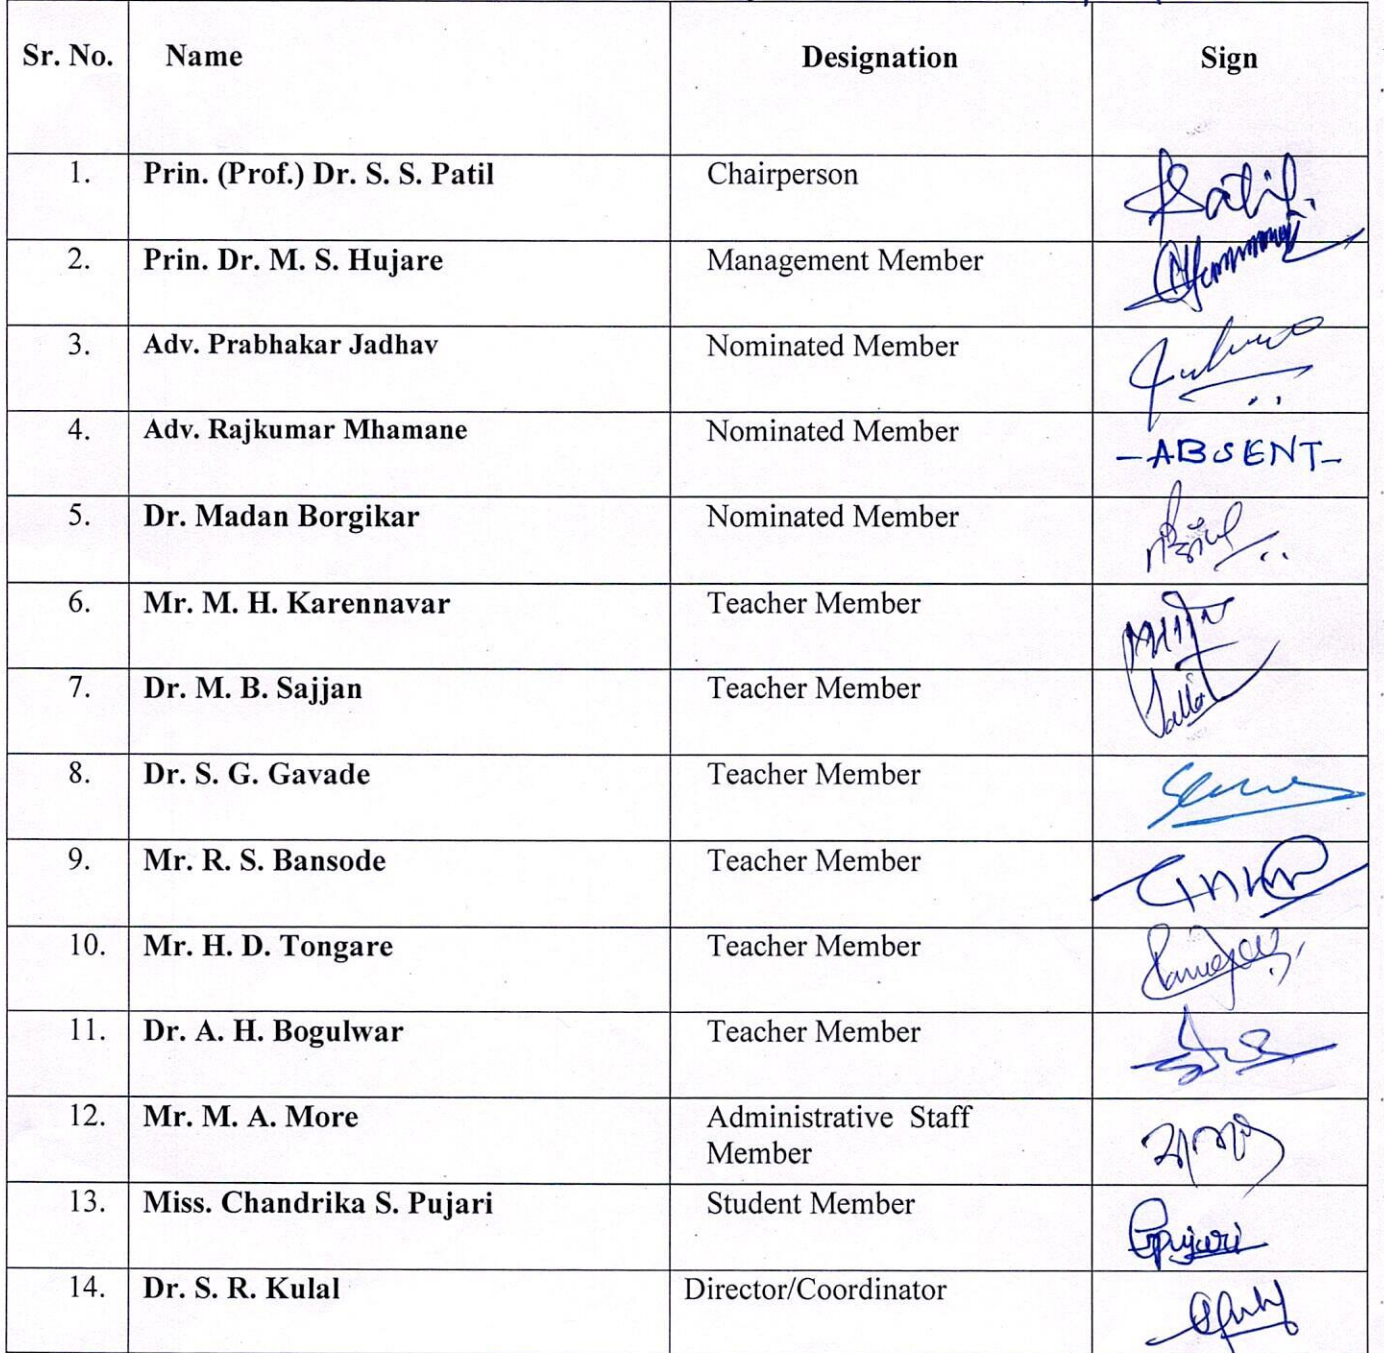 Sr. No. Name Designation Sign
1. Prin. (Prof.) Dr. S. S. Patil Chairperson
2. Prin. Dr. M. S. Hujare Management Member
3. Adv. Prabhakar Jadhav Nominated Member
4. Adv. Rajkumar Mhamane Nominated Member -ABSENT-
5. Dr. Madan Borgikar Nominated Member
6. Mr. M. H. Karennavar Teacher Member
7. Dr. M. B. Sajjan Teacher Member
8. Dr. S. G. Gavade Teacher Member
9. Mr. R. S. Bansode Teacher Member
10. Mr. H. D. Tongare Teacher Member
11. Dr. A. H. Bogulwar Teacher Member
12. Mr. M. A. More Administrative Staff
Member
13. Miss. Chandrika S. Pujari Student Member Cpujari
14. Dr. S. R. Kulal Director/Coordinator